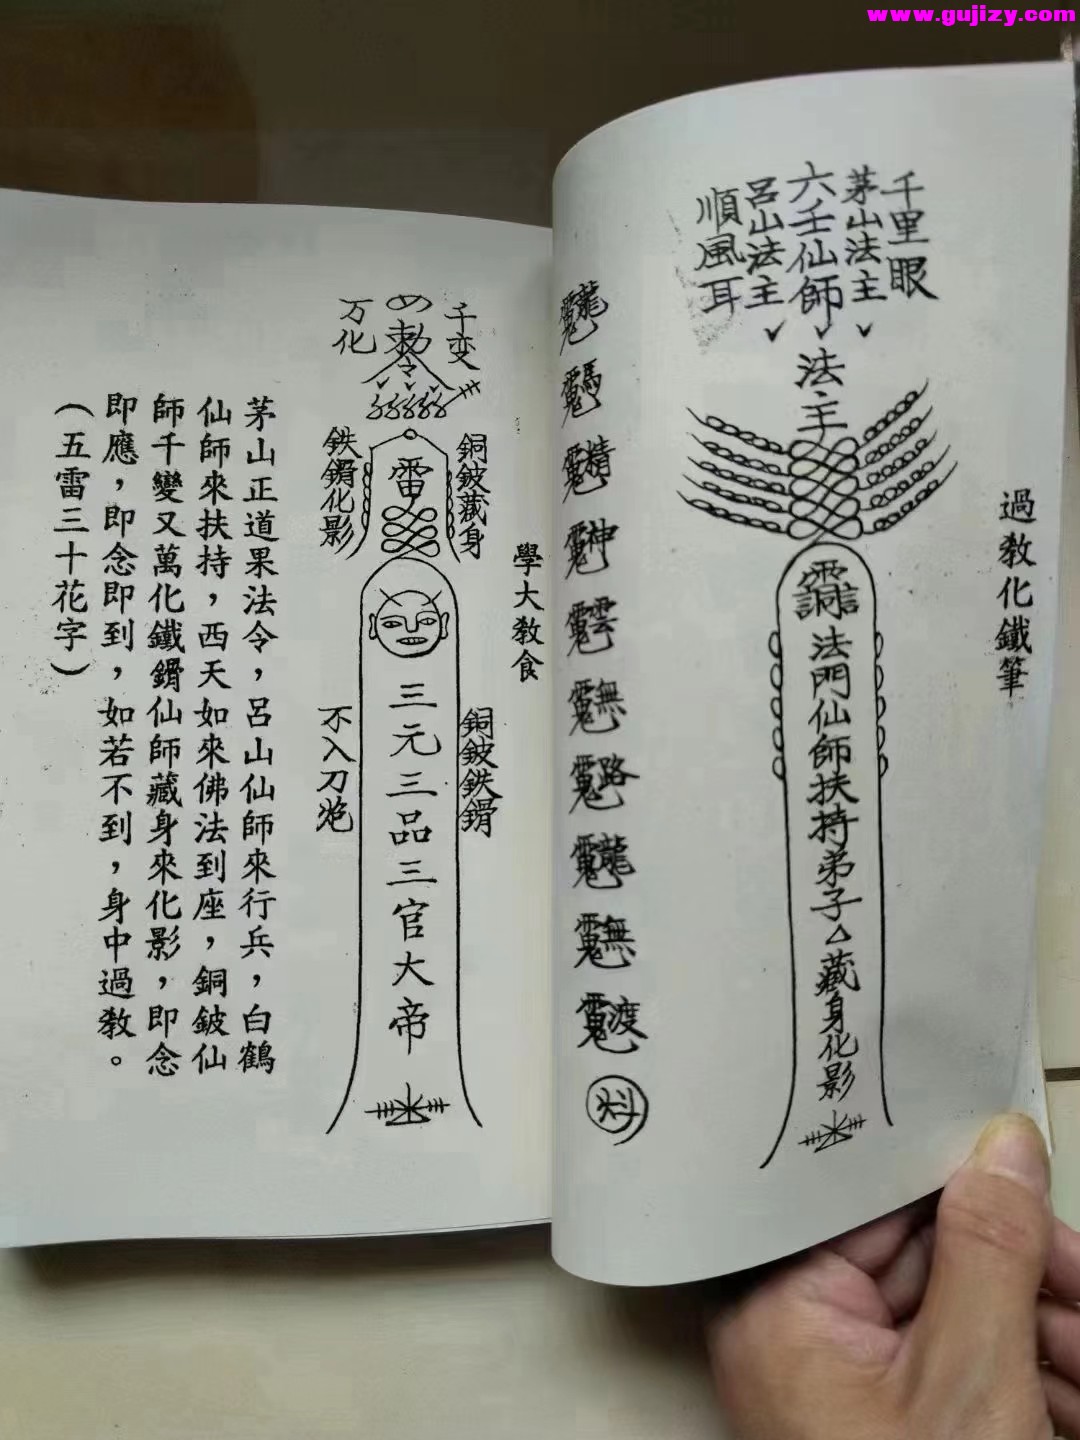 www.gujizy.com
過教化鐵筆
千里眼
茅山法主
六壬仙師
呂山法主
順風耳
法主
法門仙師扶持弟子△藏身化影
學大教食
千变
敕令
万化
銅鈹藏身
鉄鎅化影
三元三品三官大帝
銅鈹鉄鎅
不入刀炮
茅山正道果法令，呂山仙師來行兵，白鶴
仙師來扶持，西天如來佛法到座，銅鈹仙
師千變又萬化鐵鎅仙師藏身來化影，即念
即應，即念即到，如若不到，身中過教。
（五雷三十花字）